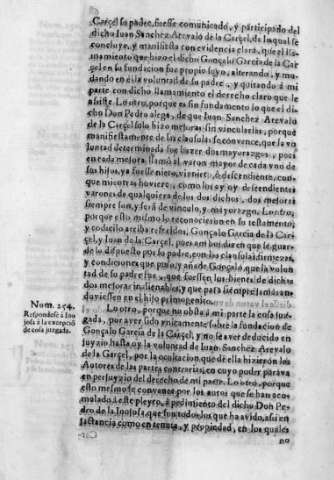 Carçel su padre, fuesse comunicado, y participado del
dicho Juan Sanchez Arevalo de la Carçel, de lo qual se
concluye, y manifiesta con evidencia clara, que el lla-
mamiento que hizo el dicho Gonçalo Garcia de la Car
çel en su fundacion fue propio suyo, alterando, y mu-
dando en ella voluntad de su padre, y quitando á mi
parte con dicho llamamiento el derecho claro que le
assiste. Lo otro, porque es sin fundamento lo que el di-
cho Don Pedro alega, de que Juan Sanchez Arevalo
de la Carçel solo hizo mejoras sin vincularlas, porque
manifiestamente de sus clausulas se convence, que la vo
luntad determinada fue hazer dos mayorazgos, pues
en cada mejora llamó al varon mayor de cada vno de
sus hijos, ya fuesse nieto, visnieto, ó descendiente, con
que mientras huviere, como los ay oy descendientes
varones de qualquiera de los dos dichos, dos mejoras
siempre son, y será de vinculo, y mayorazgo. Lo otro,
porque esto mismo lo reconocieron en su testamento,
y codicilo arriba referidos, Gonçalo Garcia de la Car-
çel, y Juan de la Carçel, pues ambos dizen que se guar-
de lo dispuesto por su padre, con las clausulas, firmezas,
y condiciones que puso, y añade Gonçalo, que la volun
tad de su padre fue, que fuessen los bienes de dichas
dos mejoras inalienables, y que para siempre jamás an-
duviessen en el hijo primogenito.
Num. 254.
Respondese á Ino
josa á la excepció
de cosa juzgada.
Lo otro, porque no obsta á mi parte la cosa juz-
gada, por aver sido vnicamente sobre la fundacion de
Gonçalo Garcia de la Carçel, y no se aver deducido en
juyzio hasta oy la voluntad de Juan Sanchez Arevalo
de la Carçel, por la ocultacion que de ella hizieron los
Autores de las partes contrarias, en cuyo poder parava
en perjuyzio del derecho de mi parte. Lo otro, porque
esto mesmo se convence por los autos que se han acu-
mulado á este pleyto, á pedimiento del dicho Don Pe-
dro de la Inojosa, que son todos los que ha avido, assi en
instancia como en tenuta, y propiedad, en los quales
no